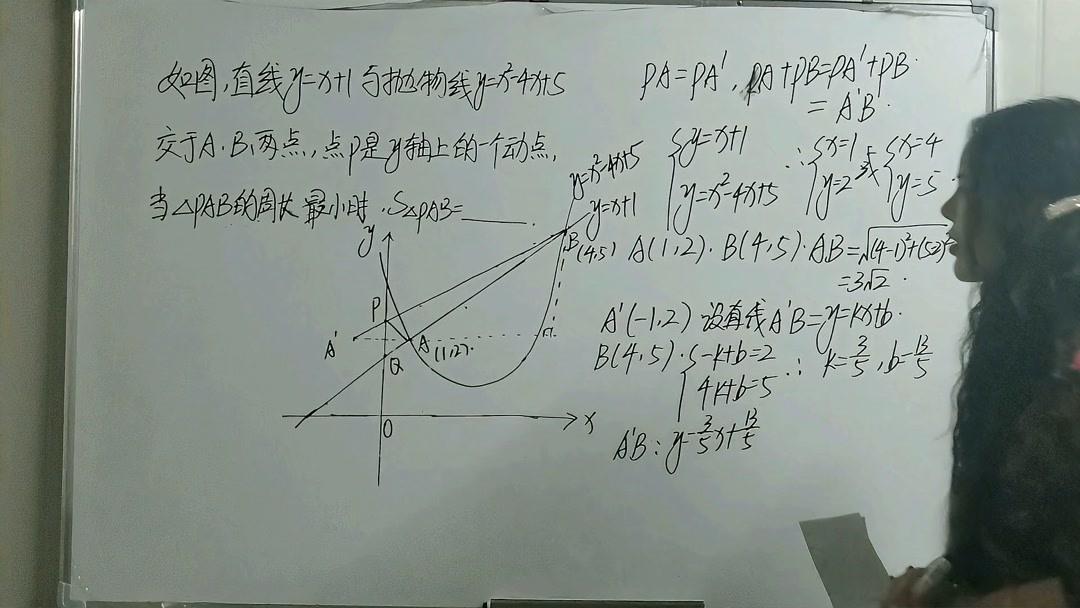 如图,直线y=x+1与抛物线y=x²-4x+5
交于A.B、两点,点P是y轴上的一个动点,
当△PAB的周长最小时.S△PAB=____.
y
P
A'
Q
A
(1,2).
O
x
y=x²-4x+5
y=x+1
B(4,5)
PA=PA', PA+PB=PA'+PB.
=A'B.
{y=x+1
y=x²-4x+5
∴{x=1
y=2
或{x=4
y=5.
A(1,2).B(4,5).AB=√(4-1)²+(5-2)²
=3√2.
A'(-1,2) 设直线A'B=y=kx+b.
B(4,5).{-k+b=2
4k+b=5
∴k=3/5,b=13/5
A'B:y=3/5x+13/5